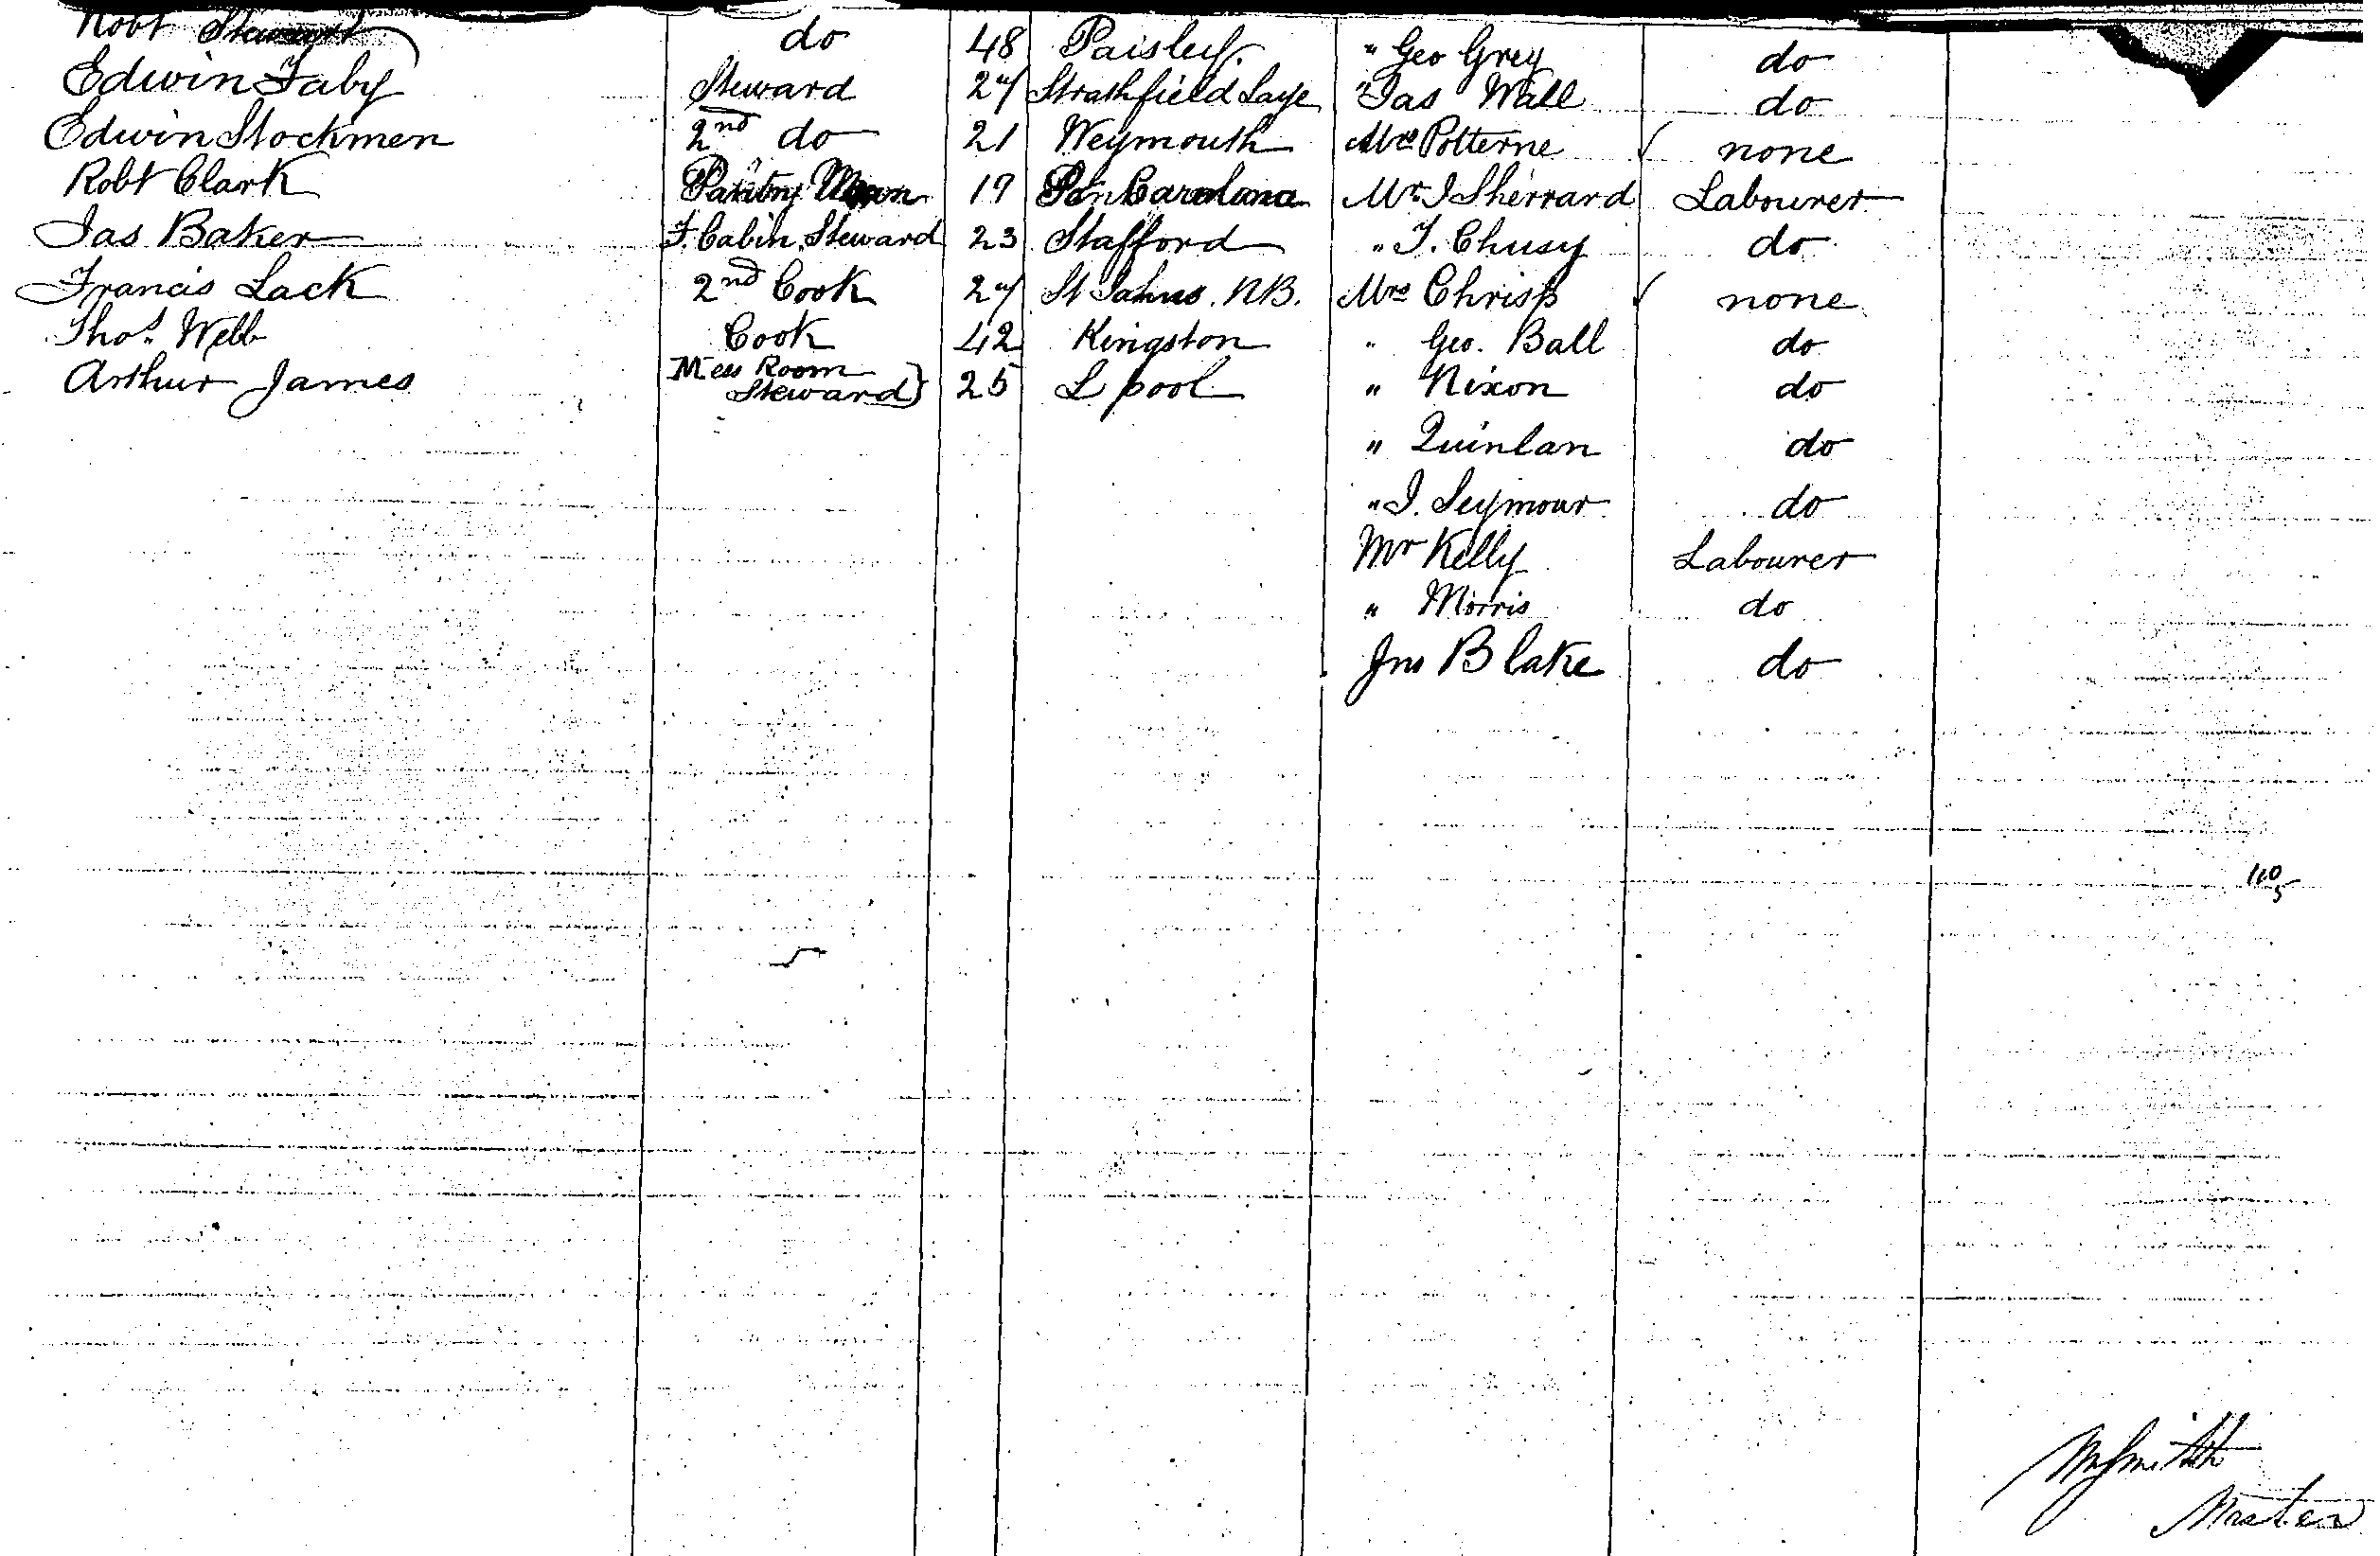 Robt Stewart do 48 Paisley. " Geo Grey do
Edwin Faby Steward 24 Strathfield Saye " Jas Wall do
Edwin Stockmen 2nd do 21 Weymouth Mrs Potterne ✓ none
Robt Clark Pantry Man 19 Mr J Sherrard Labourer
Jas Baker F. Cabin Steward 23 Stafford " T. Chusy do
Francis Lack 2nd Cook 24 St Johns. NB. Mrs Chrisp ✓ none
Thos. Webb Cook 42 Kingston " Geo. Ball do
Arthur James Mess Room Steward } 25 L pool " Nixon do
" Quinlan do
" J. Seymour do
Mr Kelly Labourer
" Morris do
Jno Blake do
110
5
Wm Smith
Master